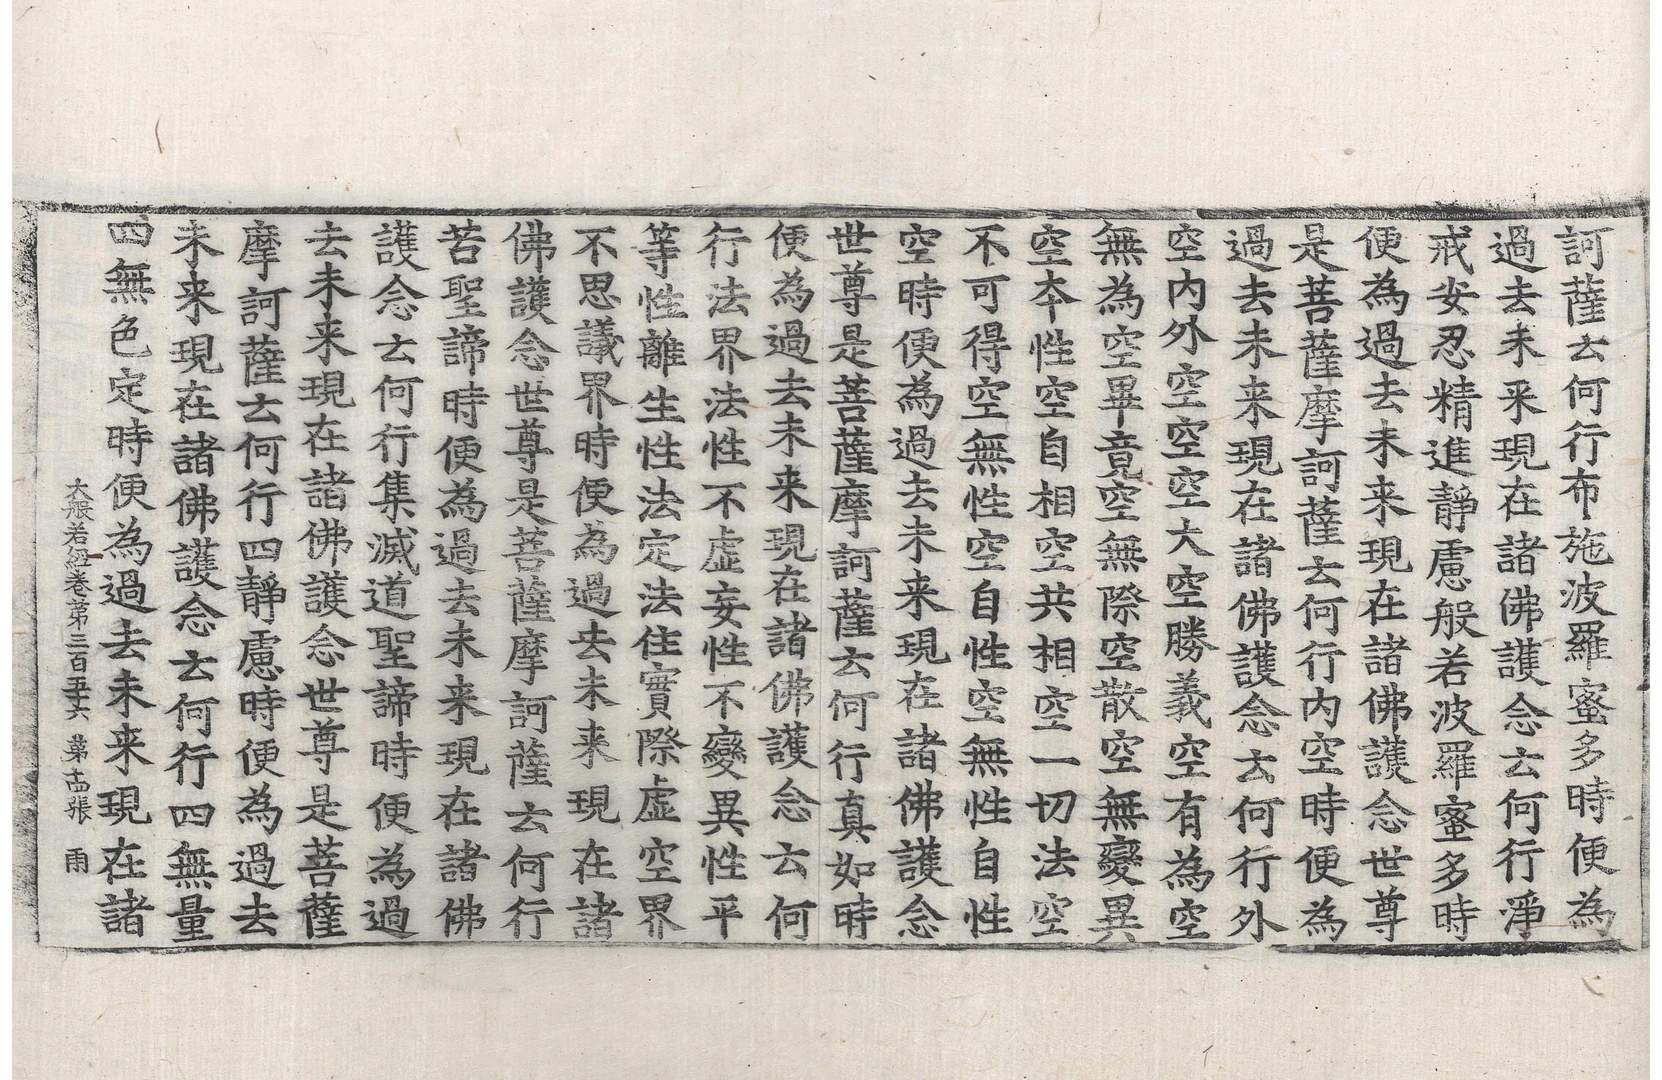 訶薩云何行布施波羅蜜多時便為
過去未来現在諸佛護念云何行淨
戒安忍精進靜慮般若波羅蜜多時
便為過去未来現在諸佛護念世尊
是菩薩摩訶薩云何行内空時便為
過去未来現在諸佛護念云何行外
空内外空空空大空勝義空有為空
無為空畢竟空無際空散空無變異
空本性空自相空共相空一切法空
不可得空無性空自性空無性自性
空時便為過去未来現在諸佛護念
世尊是菩薩摩訶薩云何行真如時
便為過去未来現在諸佛護念云何
行法界法性不虛妄性不變異性平
等性離生性法定法住實際虛空界
不思議界時便為過去未来現在諸
佛護念世尊是菩薩摩訶薩云何行
苦聖諦時便為過去未来現在諸佛
護念云何行集滅道聖諦時便為過
去未来現在諸佛護念世尊是菩薩
摩訶薩云何行四靜慮時便為過去
未来現在諸佛護念云何行四無量
四無色定時便為過去未来現在諸
大般若經卷第三百五十六 第十四張 雨